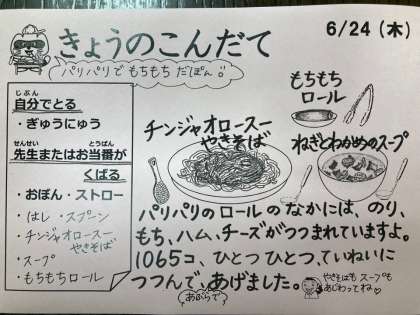 きょうのこんだて
6/24 (木)
パリパリで もちもち だぽん
じぶん
自分でとる
・ぎゅうにゅう
せんせい とうばん
先生またはお当番が
くばる
・おぼん・ストロー
・はし・スプーン
・チンジャオロースー
やきそば
・スープ
・もちもちロール
チンジャオロースー
やきそば
もちもち
ロール
ねぎとわかめのスープ
パリパリのロールのなかには、のり、
もち、ハム、チーズがつつまれていますよ。
1065コ、ひとつひとつ、ていねいに
つつんで、あげました。
あぶらで
やきそばも スープも
あじわってね